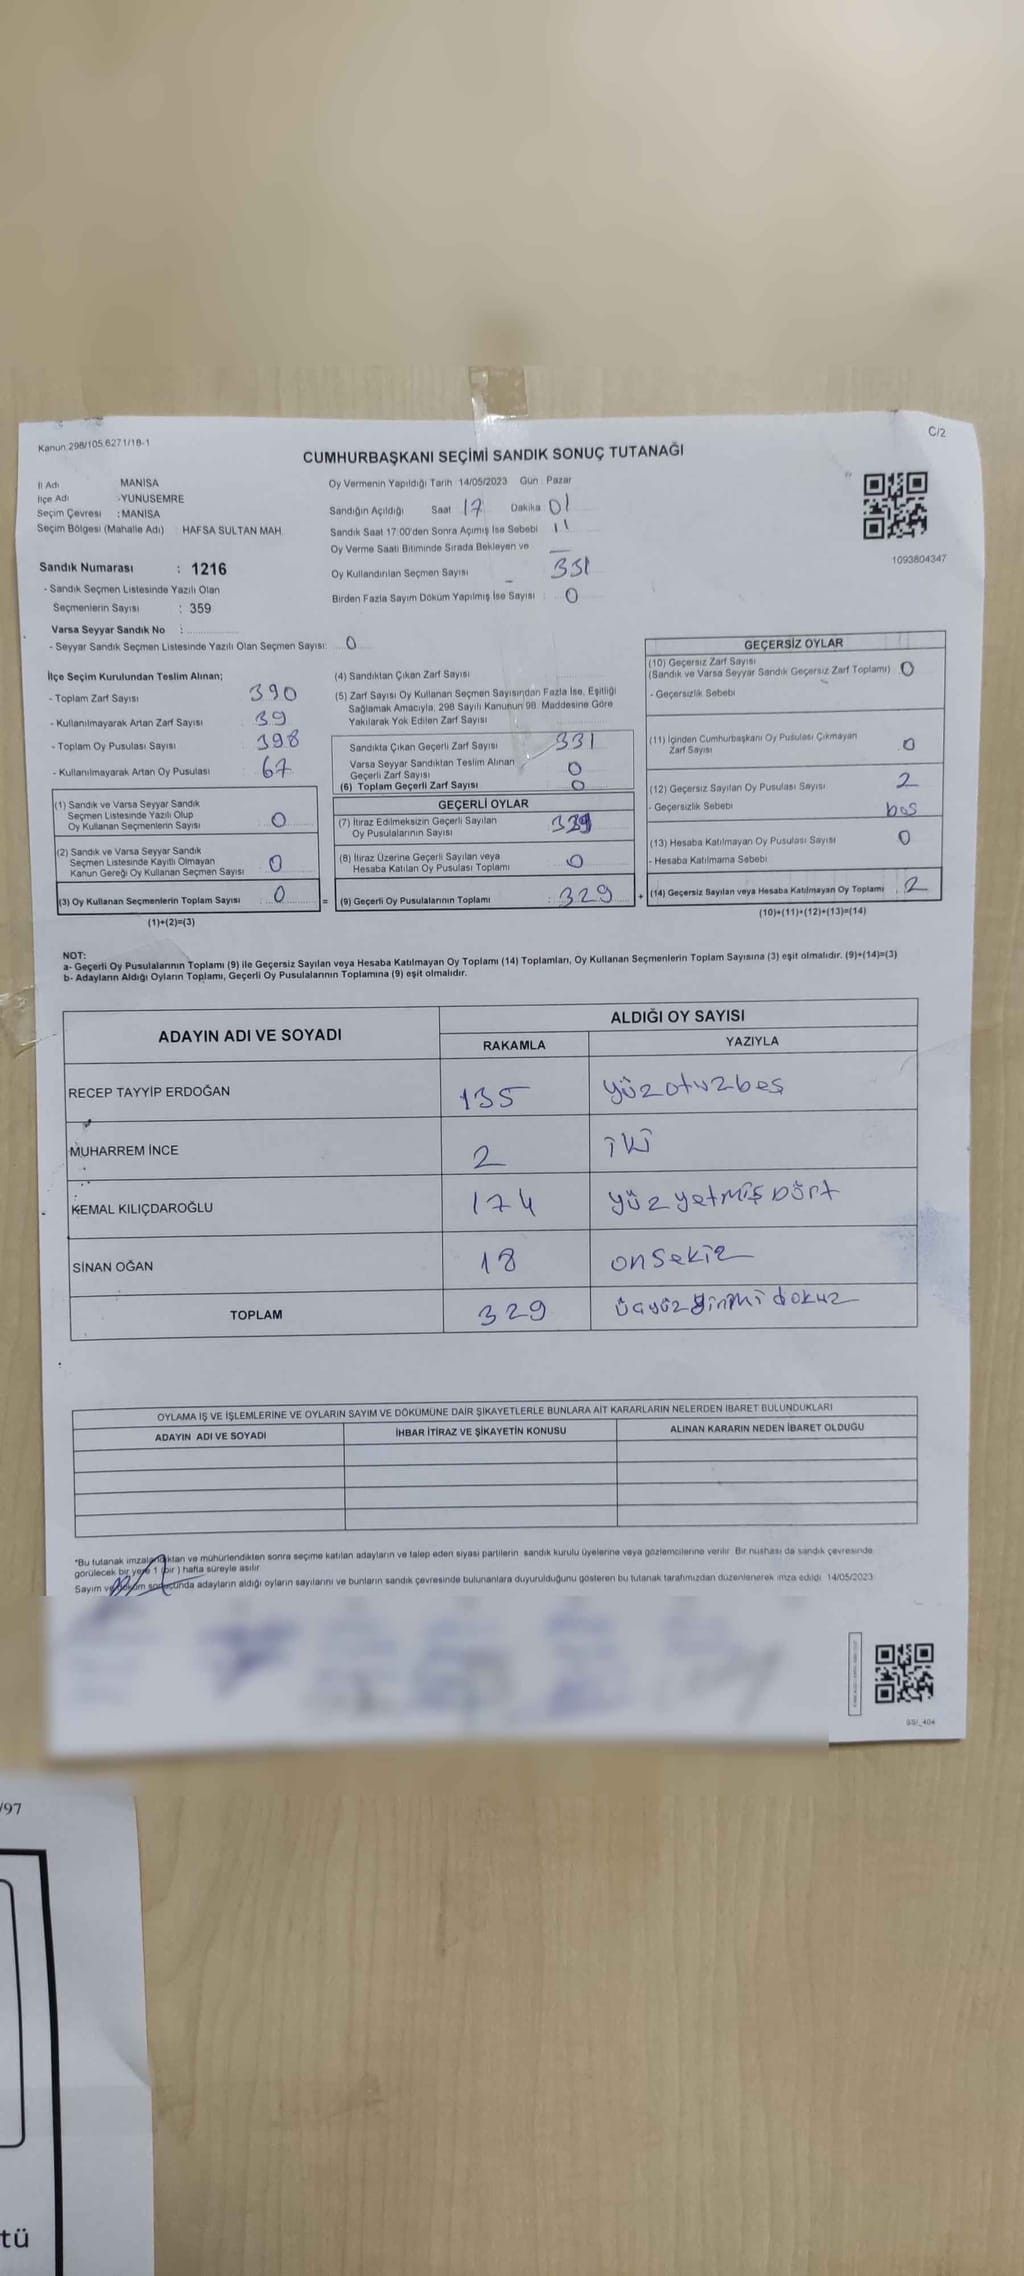 Kanun 298/105,6271/18-1
C/2
CUMHURBAŞKANI SEÇİMİ SANDIK SONUÇ TUTANAĞI
İl Adı MANİSA
İlçe Adı :YUNUSEMRE
Seçim Çevresi : MANİSA
Seçim Bölgesi (Mahalle Adı) : HAFSA SULTAN MAH.
Sandık Numarası : 1216
- Sandık Seçmen Listesinde Yazılı Olan
Seçmenlerin Sayısı : 359
Varsa Seyyar Sandık No :
- Seyyar Sandık Seçmen Listesinde Yazılı Olan Seçmen Sayısı: 0
Oy Vermenin Yapıldığı Tarih 14/05/2023 Gün : Pazar
Sandığın Açıldığı Saat 17 Dakika 01
Sandık Saat 17:00'den Sonra Açımış İse Sebebi
Oy Verme Saati Bitiminde Sırada Bekleyen ve
Oy Kullandırılan Seçmen Sayısı 331
Birden Fazla Sayım Döküm Yapılmış İse Sayısı : 0
1093804347
İlçe Seçim Kurulundan Teslim Alınan;
- Toplam Zarf Sayısı 390
- Kullanılmayarak Artan Zarf Sayısı 39
- Toplam Oy Pusulası Sayısı 398
- Kullanılmayarak Artan Oy Pusulası 67
(1) Sandık ve Varsa Seyyar Sandık
Seçmen Listesinde Yazılı Olup
Oy Kullanan Seçmenlerin Sayısı : 0
(2) Sandık ve Varsa Seyyar Sandık
Seçmen Listesinde Kayıtlı Olmayan
Kanun Gereği Oy Kullanan Seçmen Sayısı 0
(3) Oy Kullanan Seçmenlerin Toplam Sayısı : 0
(1)+(2)=(3)
=
(4) Sandıktan Çıkan Zarf Sayısı
(5) Zarf Sayısı Oy Kullanan Seçmen Sayısından Fazla İse, Eşitliği
Sağlamak Amacıyla, 298 Sayılı Kanunun 98. Maddesine Göre
Yakılarak Yok Edilen Zarf Sayısı
Sandıkta Çıkan Geçerli Zarf Sayısı 331
Varsa Seyyar Sandıktan Teslim Alınan
Geçerli Zarf Sayısı 0
(6) Toplam Geçerli Zarf Sayısı 0
GEÇERLİ OYLAR
(7) İtiraz Edilmeksizin Geçerli Sayılan
Oy Pusulalarının Sayısı 329
(8) İtiraz Üzerine Geçerli Sayılan veya
Hesaba Katılan Oy Pusulası Toplamı 0
(9) Geçerli Oy Pusulalarının Toplamı : 329
+
GEÇERSİZ OYLAR
(10) Geçersiz Zarf Sayısı
(Sandık ve Varsa Seyyar Sandık Geçersiz Zarf Toplamı) 0
- Geçersizlik Sebebi
(11) İçinden Cumhurbaşkanı Oy Pusulası Çıkmayan
Zarf Sayısı 0
(12) Geçersiz Sayılan Oy Pusulası Sayısı 2
- Geçersizlik Sebebi boş
(13) Hesaba Katılmayan Oy Pusulası Sayısı 0
- Hesaba Katılmama Sebebi
(14) Geçersiz Sayılan veya Hesaba Katılmayan Oy Toplamı 2
(10)+(11)+(12)+(13)=(14)
NOT:
a- Geçerli Oy Pusulalarının Toplamı (9) ile Geçersiz Sayılan veya Hesaba Katılmayan Oy Toplamı (14) Toplamları, Oy Kullanan Seçmenlerin Toplam Sayısına (3) eşit olmalıdır. (9)+(14)=(3)
b- Adayların Aldığı Oyların Toplamı, Geçerli Oy Pusulalarının Toplamına (9) eşit olmalıdır.
ADAYIN ADI VE SOYADI ALDIĞI OY SAYISI
RAKAMLA YAZIYLA
RECEP TAYYİP ERDOĞAN 135 yüzotuzbeş
MUHARREM İNCE 2 iki
KEMAL KILIÇDAROĞLU 174 yüzyetmişdört
SİNAN OĞAN 18 onsekiz
TOPLAM 329 üçyüzyirmi dokuz
OYLAMA İŞ VE İŞLEMLERİNE VE OYLARIN SAYIM VE DÖKÜMÜNE DAİR ŞİKAYETLERLE BUNLARA AİT KARARLARIN NELERDEN İBARET BULUNDUKLARI
ADAYIN ADI VE SOYADI İHBAR İTİRAZ VE ŞİKAYETİN KONUSU ALINAN KARARIN NEDEN İBARET OLDUĞU
*Bu tutanak imzalandıktan ve mühürlendikten sonra seçime katılan adayların ve talep eden siyasi partilerin sandık kurulu üyelerine veya gözlemcilerine verilir. Bir nüshası da sandık çevresinde
görülecek bir yere 1 (bir) hafta süreyle asılır.
Sayım ve döküm sonucunda adayların aldığı oyların sayılarını ve bunların sandık çevresinde bulunanlara duyurulduğunu gösteren bu tutanak tarafımızdan düzenlenerek imza edildi. 14/05/2023
SSİ_404
/97
tü